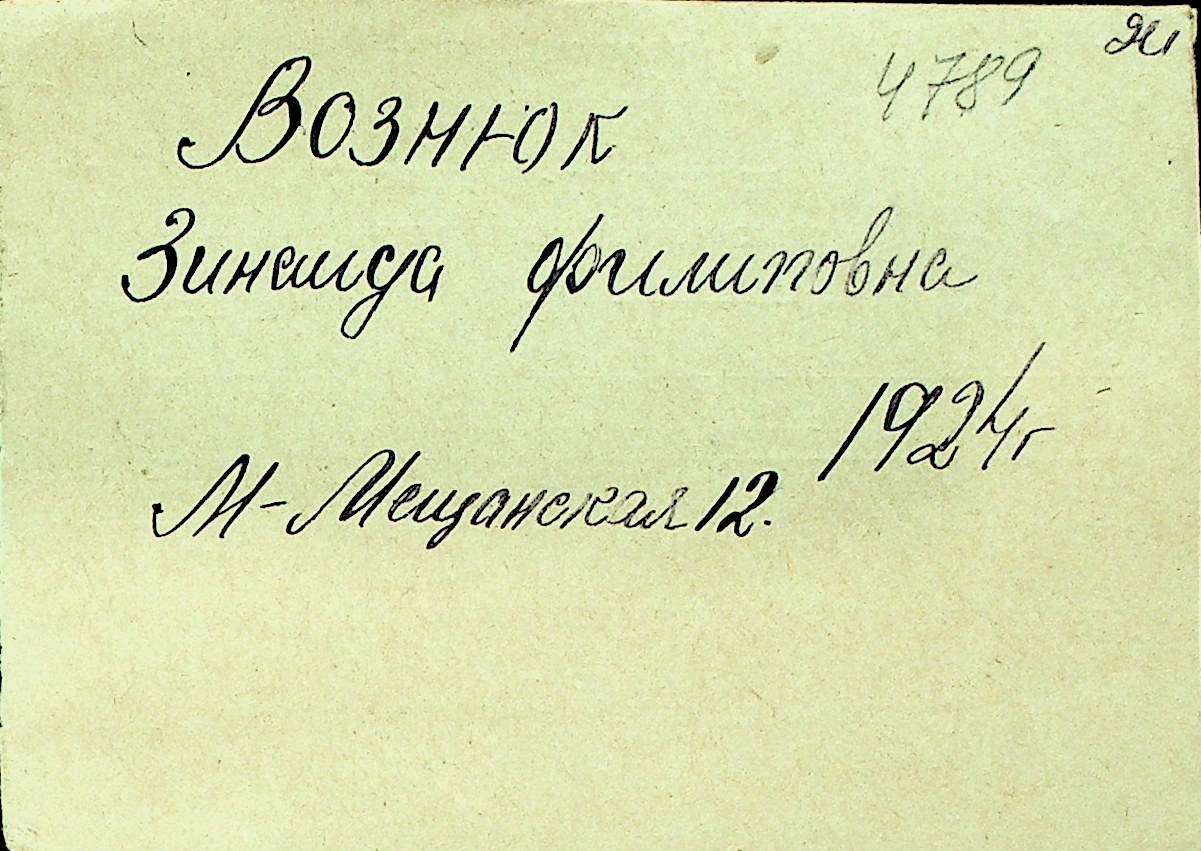 4789
Вознюк
Зинаида Филиповна
1924 г
М-Мещанская 12.